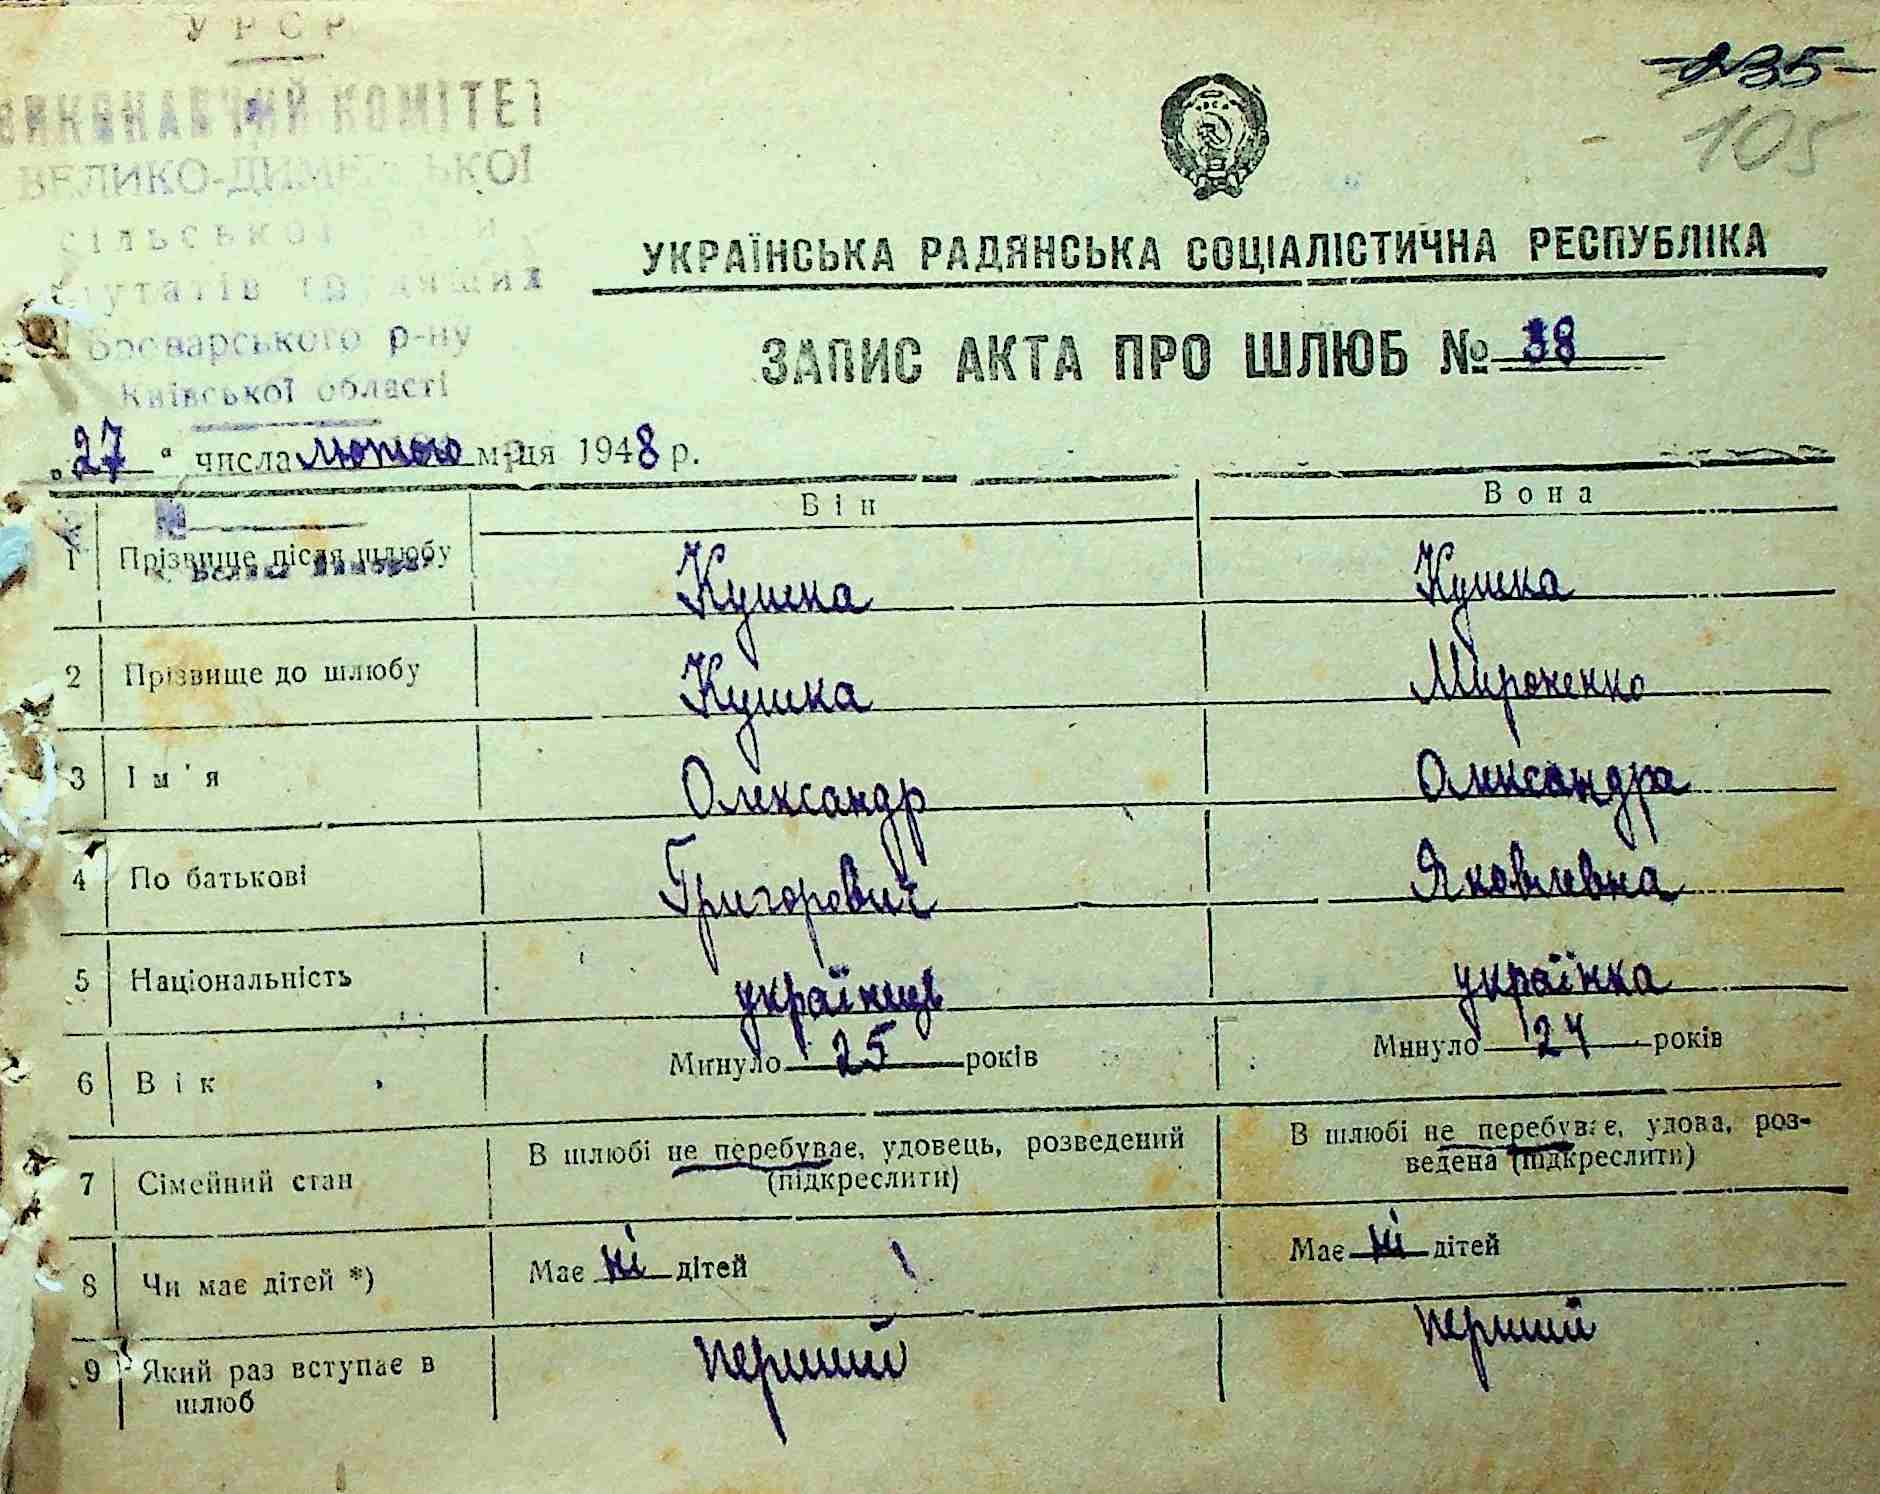 УРСР
ВИКОНАВЧИЙ КОМІТЕТ
ВЕЛИКО-ДИМЕРСЬКОЇ
сільської Ради
депутатів трудящих
Броварського р-ну
Київської області
235
105
УКРАЇНСЬКА РАДЯНСЬКА СОЦІАЛІСТИЧНА РЕСПУБЛІКА
ЗАПИС АКТА ПРО ШЛЮБ № 38
„27“ числа лютого м-ця 1948 р.
Він Вона
1 Прізвище після шлюбу Кушка Кушка
2 Прізвище до шлюбу Кушка Мироненко
3 Ім'я Олександр Олександра
4 По батькові Григорович Яковлевна
5 Національність українець українка
6 Вік Минуло 25 років Минуло 24 років
7 Сімейний стан В шлюбі не перебуває, удовець, розведений (підкреслити) В шлюбі не перебуває, удова, роз-
ведена (підкреслити)
8 Чи має дітей *) Має ні дітей Має ні дітей
9 Який раз вступає в шлюб перший перший